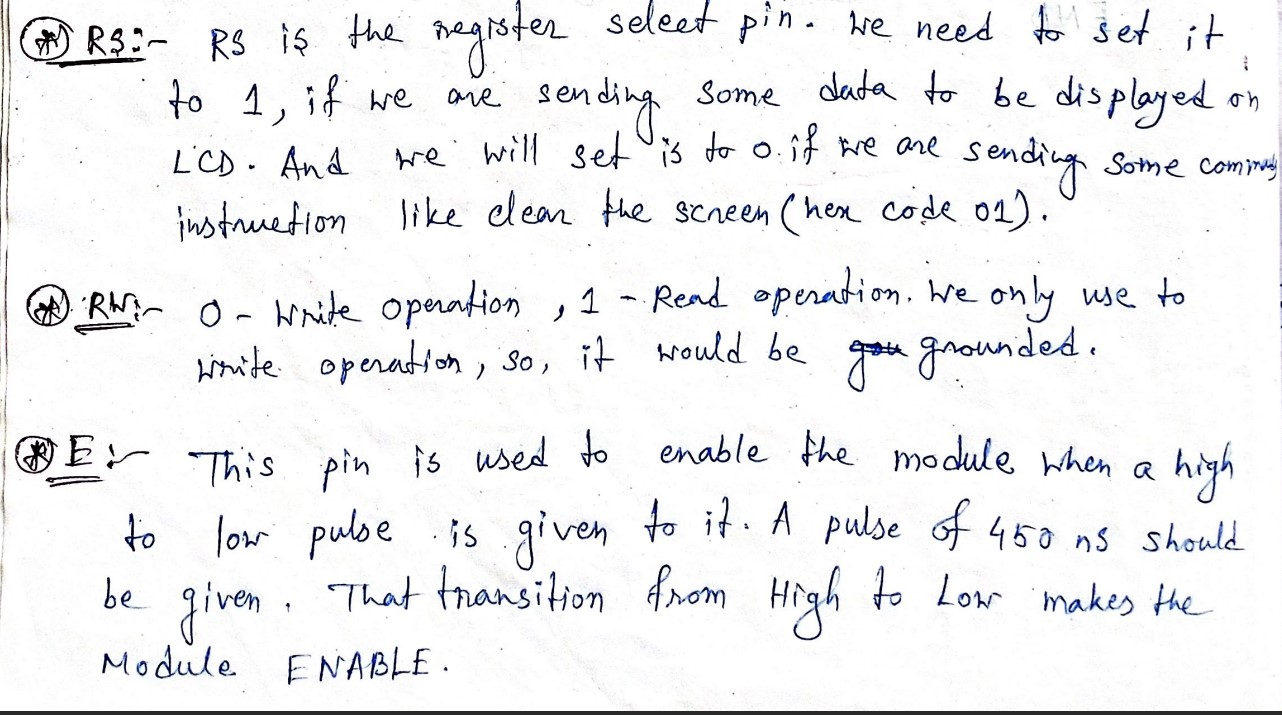 RS:- RS is the register select pin. We need to set it
to 1, if we are sending some data to be displayed on
LCD. And we will set is to 0. if we are sending some
instruction like clear the screen (hex code 01).
RW:- 0 - Write operation, 1 - Read operation. We only use to
write operation, so, it would be grounded.
E:- This pin is used to enable the module when a high
to low pulse is given to it. A pulse of 450 ns should
be given. That transition from High to Low makes the
Module ENABLE.